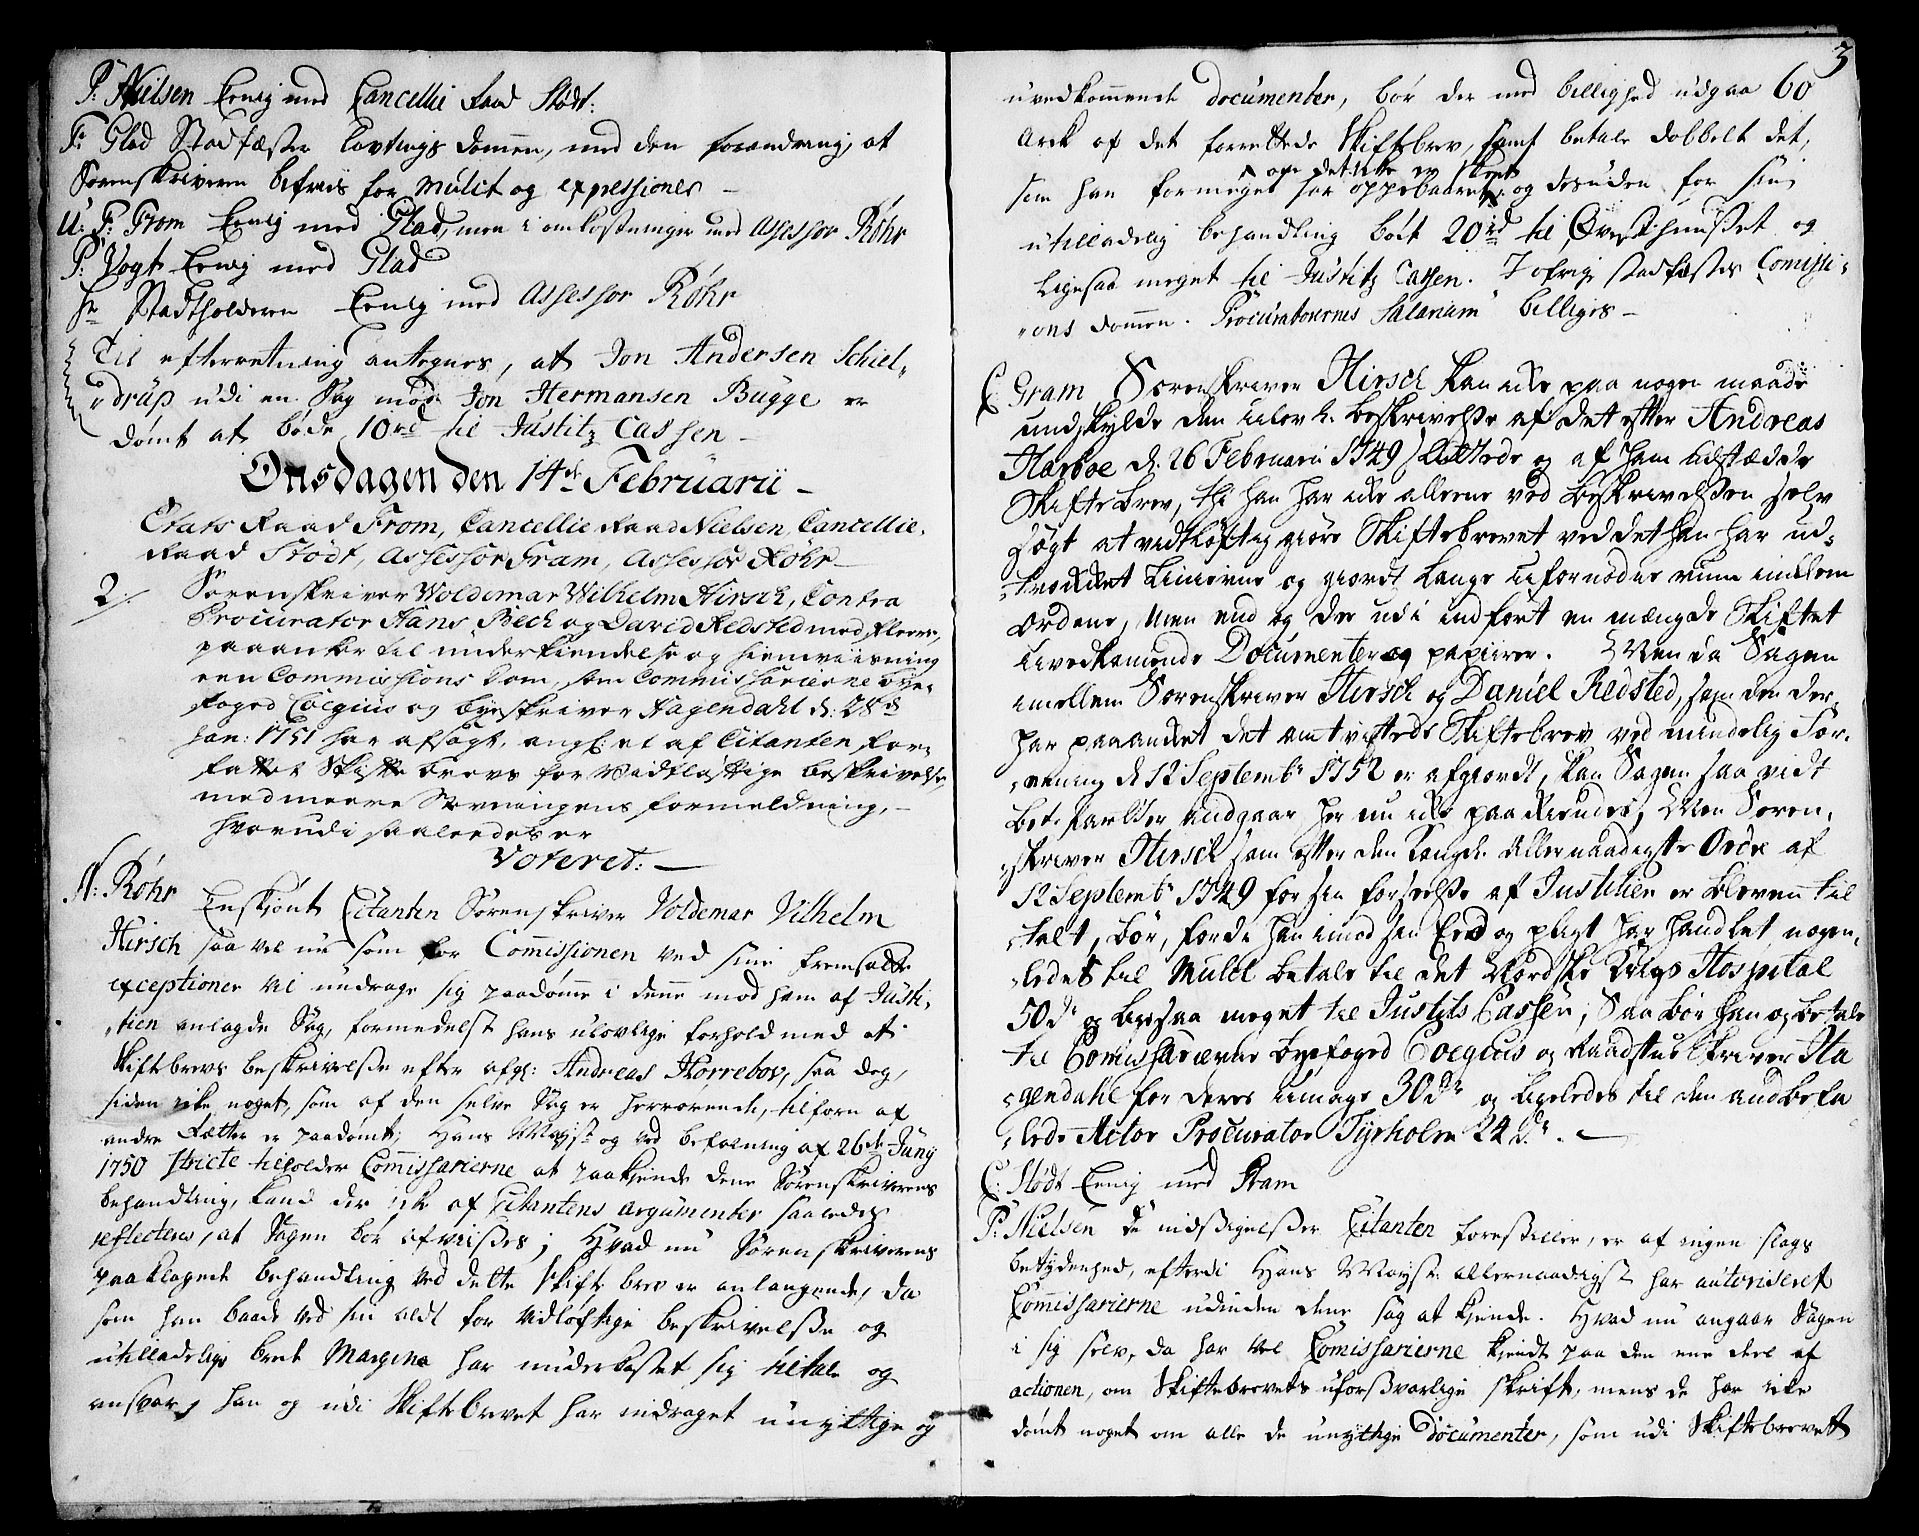 P: Nielsen Eenig med Cancellie Raad Stødt:
F: Glad Stadfæster Lavtings Dommen, med den forandring, at
Sorenskriveren befries for Mulct og expressioner —
U: F: From Eenig med Glad, men i omkostninger med Assessor Röhr
P: Vogt Eenig med Glad
Hr Stadtholderen Eenig med Assessor Röhr
Til efterretning antegnes, at Jon Andersen Schiel„
„drup udi en Sag mod Jon Hermansen Bugge er
dømt at bøde 10rd til Justitz Cassen —
Onsdagen den 14de Februarii —
Etats Raad From, Cancellie Raad Nielsen, Cancellie„
Raad Stödt, Assessor Gram, Assessor Röhr —
2/. Sorenskriver Woldemar Wilhelm Hirsch, Contra
Procurator Hans Beck og David Redsted med fleere,
paaanker til underkiendelse og hiemviisning
een Commissions Dom, som Commissarierne Bye„
foged Coegius og Byeskriver Hagendahl d: 28de
Jan: 1751 har afsagt, angl: et af Citanten for„
fattet Skifte brevs for Vidtløftige beskrivelse,
med meere Stevningens formeldning, —
hvorudi saaledes er
Voteret: —
A: Röhr Enskjønt Citanten Sörenskriver Voldemar Vilhelm
Hirsch saa vel nu som for Commissionen ved sine fremsatte
exceptioner vil undrage sig paadømme i denne mod ham af Justi„
„tien anlagde Sag, formedelst hans ulovlige forhold med at
Skiftebrevs beskrivelse efter afg: Andreas Horrebow, saa dog,
siden ikke noget, som af den selve Sag er herrørende, tilforn af
andre Rætter er paadømt; Hans Mayst: og ved befalning af 26de Juny
1750 stricte tilholder Commissarierne at paakjende denne Sørenskriverens
behandling, kand der ikke af Citantens argumenter saaledes
reflecteres, at Sagen bør afviises; Hvad nu Sørenskriverens
paaklagede behandling ved dette Skifte brev er anlangende, da
som han baade ved sin alt for vidløftige beskrivelse og
utilladelige brede Margine har underkastet sig tiltale og
ansvar, han og udi Skiftebrevet har indraget unyttige og
3
uvedkommende documenter, bør der med billighed udgaae 60
Ark af det forrettede Skiftebrev, samt betale dobbelt det,
om det ikke er skeet
som han formeget har oppebaaret, og desuden for sin
utilladelig behandling bøde 20rd til Qvæsthuuset og
Ligesaa meget til Justitz Cassen. I øfrig stadfæstes Comissi„
„ons dommen. Procuratorernes Salarium billiges —
C: Gram Sorenskriver Hirsch kan ikke paa nogen maade
undskylde den ulovl. beskrivelse af det efter Andreas
Harboe d. 26 Februarii 1749 sluttede og af ham udstædde
Skifte brev, thi han har ikke alleene ved beskrivelsen selv
søgt at vidtløftig giøre Skiftebrevet ved det han har ud„
„trækket Linierne og giordt lange ufornødne rum imellem
Ordene, Men end og der udi indført en mængde Skiftet
uvedkomende Documenter og papiirer. Men da Sagen
imellem Sorenskriver Hirsch og Daniel Redsted, som den der
har paaanket det omtvistede Skiftebrev ved mindelig For„
„eening d 12 Septembr 1752 er afgiordt, kan Sagen saa vidt
bete Parter angaar her nu ikke paakiendes, Men Soren„
„skriver Hirsch som efter den Kongel. Allernaadigste Ordre af
12 Septembr 1749 for sin forseelse af Justitien er bleven til
„talt, bør, fordi han imod sin Eed og pligt har handlet nogen„
„ledes til Mulct betale til det Nordske Krigs Hospital
50 dr og ligesaa meget til Justits Cassen; Saa bør han og betale
til Comissarierne byefoged Coegius og Raadstueskriver Ha
„gendahl for deres Umage 30 dr og ligeledes til den anbefa
„lede Actor Procurator Tyrholm 24 dr. —
C: Stödt Eenig med Gram
P: Nielsen De indsigelser Citanten forestiller, er af ingen slags
betydenhed, efterdi Hans Mayst: allernaadigst har autoriseret
Commissarierne udi denne sag at kjende. Hvad nu angaar Sagen
i sig selv, da har vel Commissarierne kjendt paa den ene deel af
actionen, om Skiftebrevets uforsvarlige skrift, mens de har ikke
dømt noget om alle de unyttige Documenter, som udi Skiftebrevet